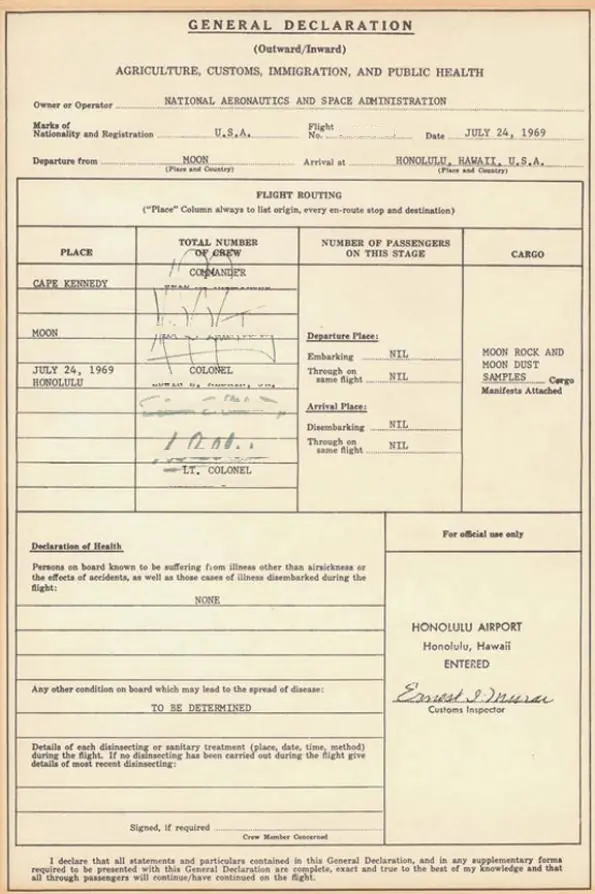 GENERAL DECLARATION
(Outward/Inward)
AGRICULTURE, CUSTOMS, IMMIGRATION, AND PUBLIC HEALTH
Owner or Operator NATIONAL AERONAUTICS AND SPACE ADMINISTRATION
Marks of
Nationality and Registration U.S.A. Flight No. Date JULY 24, 1969
Departure from MOON Arrival at HONOLULU, HAWAII, U.S.A.
(Place and Country) (Place and Country)
FLIGHT ROUTING
("Place" Column always to list origin, every en-route stop and destination)
PLACE
TOTAL NUMBER
OF CREW
NUMBER OF PASSENGERS
ON THIS STAGE
CARGO
CAPE KENNEDY
MOON
JULY 24, 1969
HONOLULU
COMMANDER
COLONEL
LT. COLONEL
Departure Place:
Embarking NIL
Through on
same flight NIL
Arrival Place:
Disembarking NIL
Through on
same flight NIL
MOON ROCK AND
MOON DUST
SAMPLES Cargo
Manifests Attached
Declaration of Health
Persons on board known to be suffering from illness other than airsickness or
the effects of accidents, as well as those cases of illness disembarked during the
flight:
NONE
Any other condition on board which may lead to the spread of disease:
TO BE DETERMINED
Details of each disinsecting or sanitary treatment (place, date, time, method)
during the flight. If no disinsecting has been carried out during the flight give
details of most recent disinsecting:
Signed, if required
Crew Member Concerned
For official use only
HONOLULU AIRPORT
Honolulu, Hawaii
ENTERED
Ernest I. Murai
Customs Inspector
I declare that all statements and particulars contained in this General Declaration, and in any supplementary forms
required to be presented with this General Declaration are complete, exact and true to the best of my knowledge and that
all through passengers will continue/have continued on the flight.